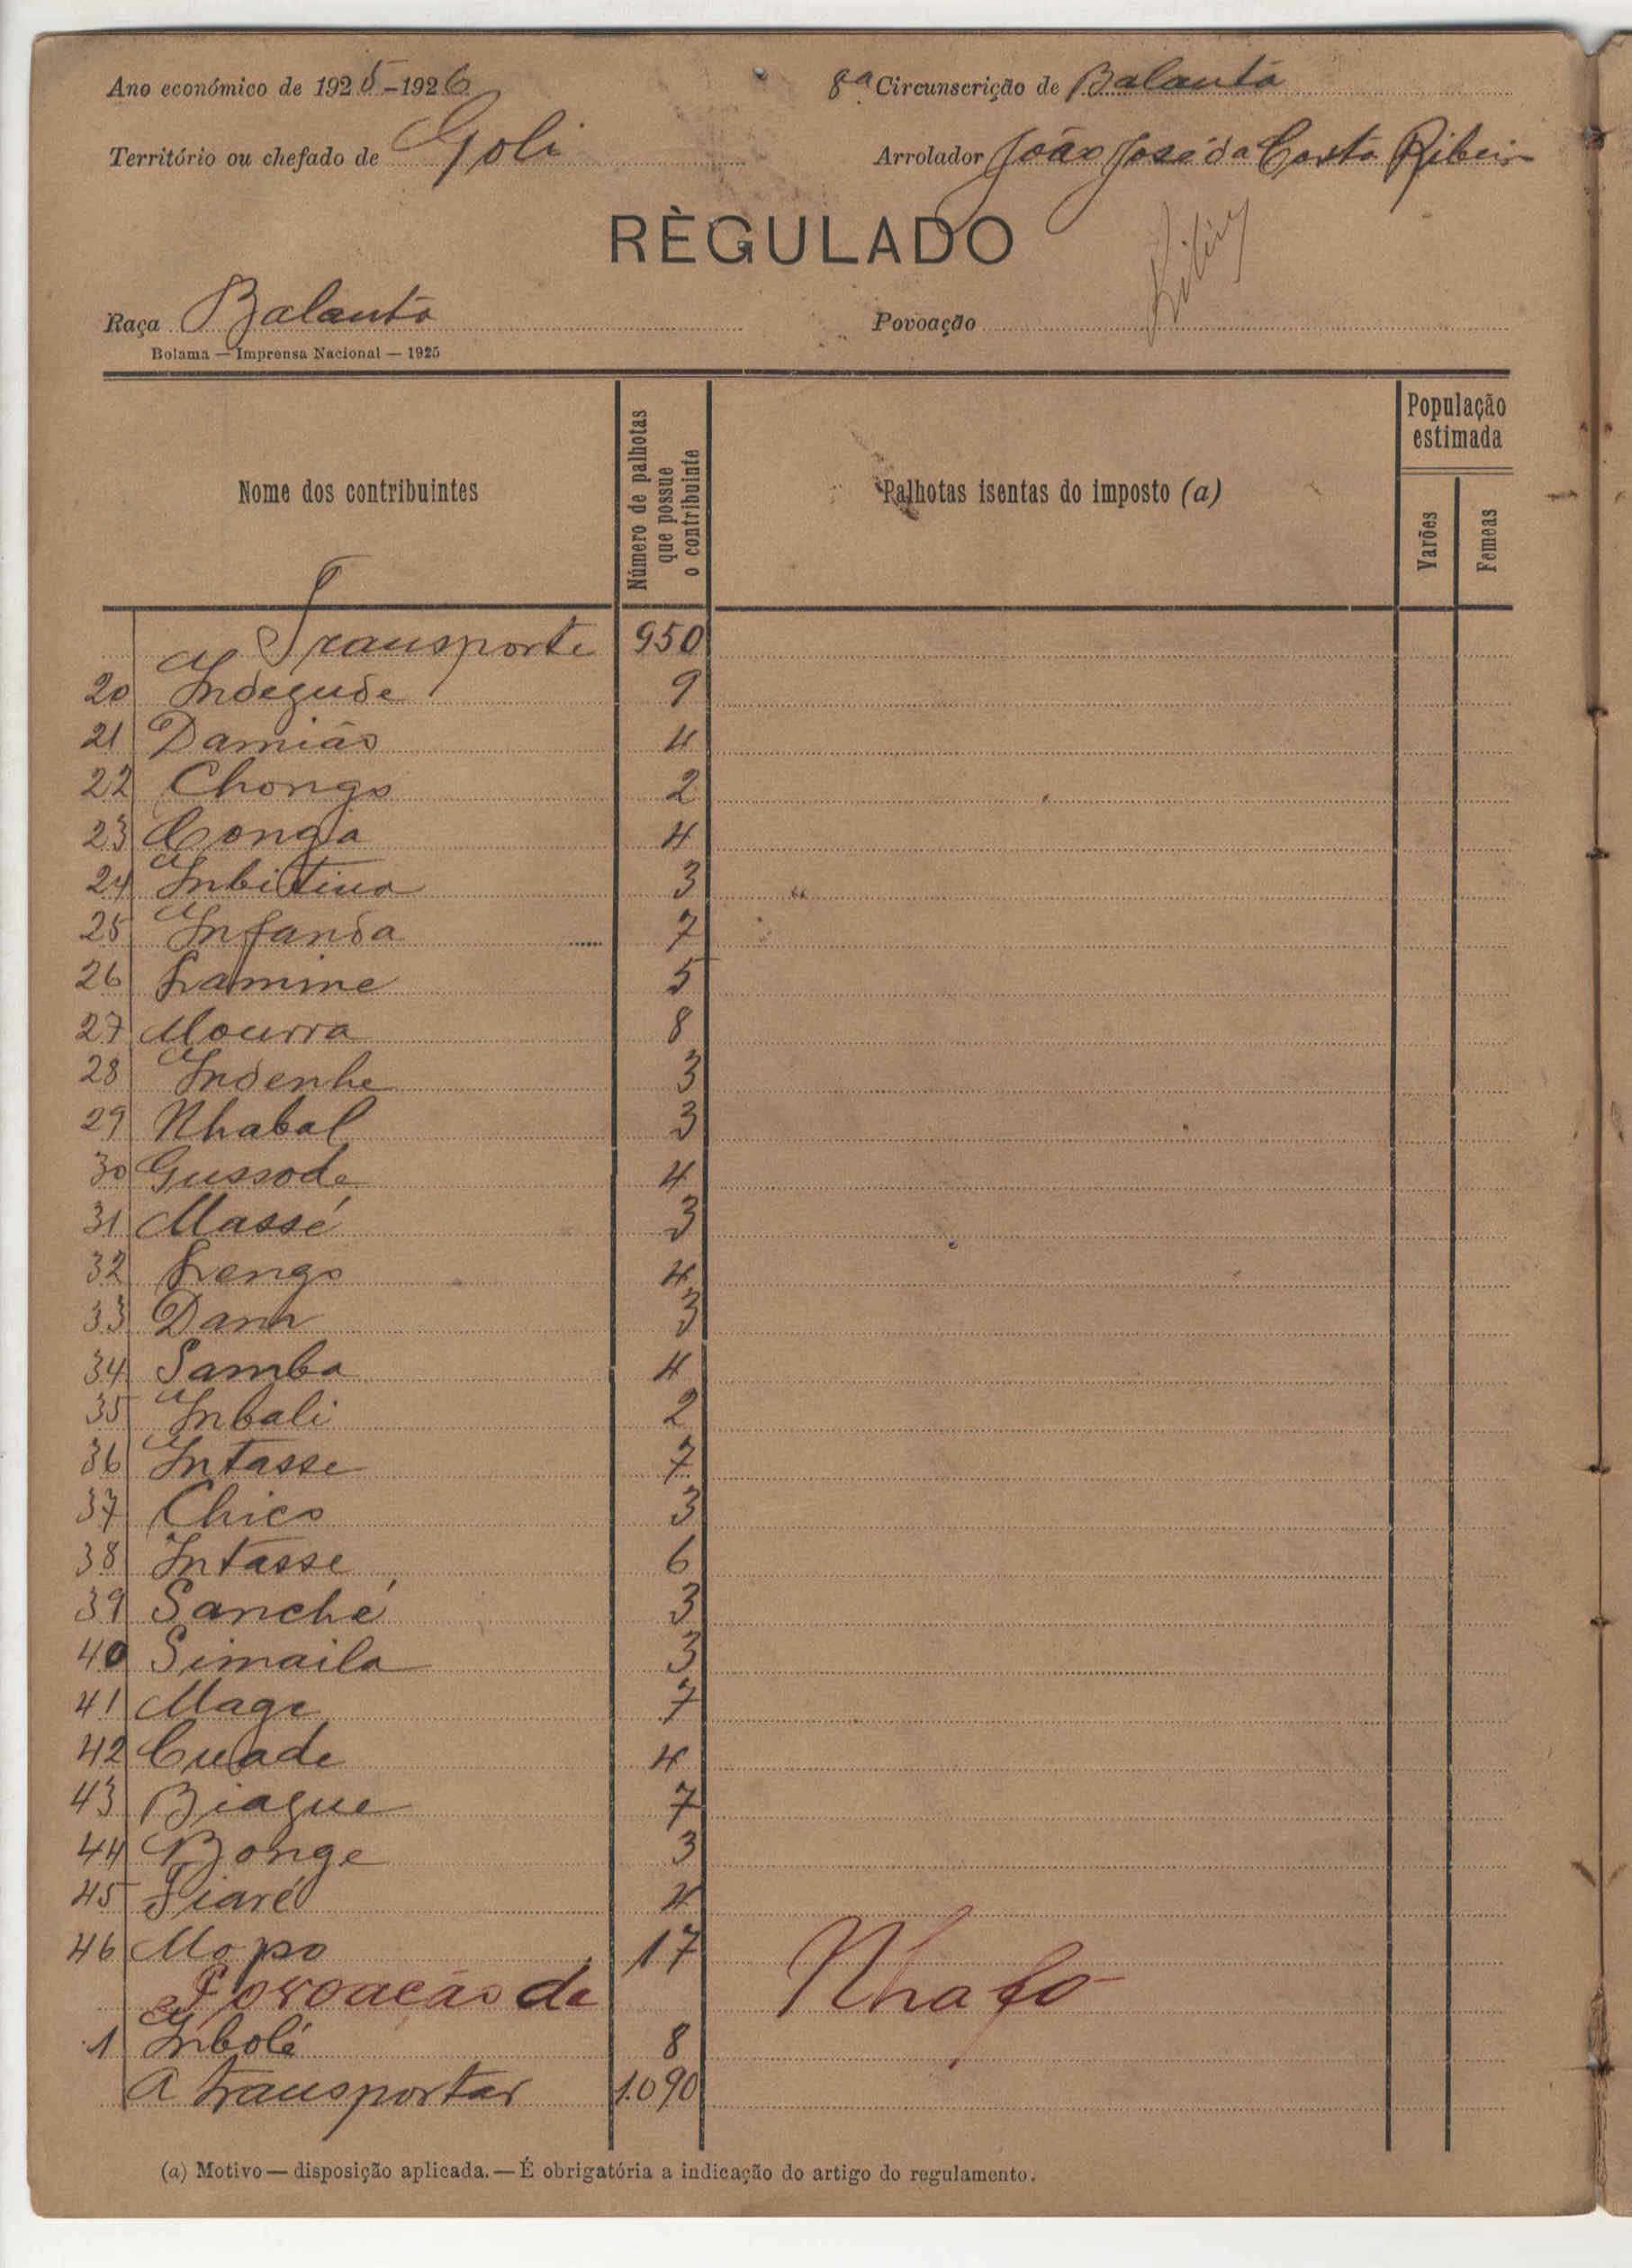 Ano económico de 1925-1926 8ª Circunscrição de Balanta
Território ou chefado de Goli Arrolador João José da Costa Ribeiro
RÈGULADO
Raça Balanta Povoação
Bolama — Imprensa Nacional — 1925
Nome dos contribuintes
Número de palhotas que possue o contribuinte
Palhotas isentas do imposto (a)
População estimada
Varões
Femeas
Transporte 950
20 Indegude 9
21 Damião 4
22 Chongo 2
23 Conga 4
24 Inbitina 3
25 Infanda 7
26 Lamine 5
27 Mourra 8
28 Indenhe 3
29 Nhabal 3
30 Gussode 4
31 Massé 3
32 Lengo 4
33 Dann 3
34 Samba 4
35 Inbali 2
36 Intasse 7
37 Chico 3
38 Intasse 6
39 Sanché 3
40 Simaila 3
41 Mage 7
42 Cuade 4
43 Biague 7
44 Bonge 3
45 Siaré 4
46 Mopo 17
Povoação de Nhafo
1 Inbolé 8
A transportar 1.090
(a) Motivo — disposição aplicada. — É obrigatória a indicação do artigo do regulamento.